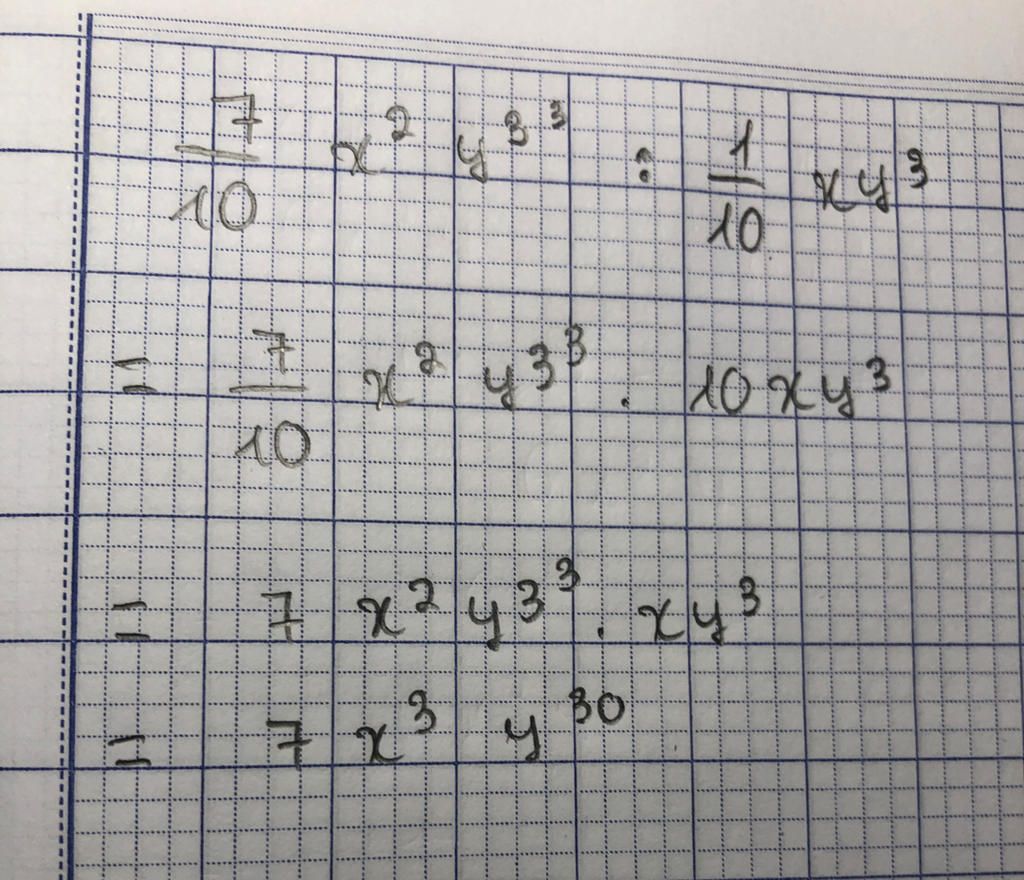 7/10 x² y^3^3 : 1/10 xy³
= 7/10 x² y^3^3 . 10xy³
= 7 x² y^3^3 . xy³
= 7 x³ y³⁰